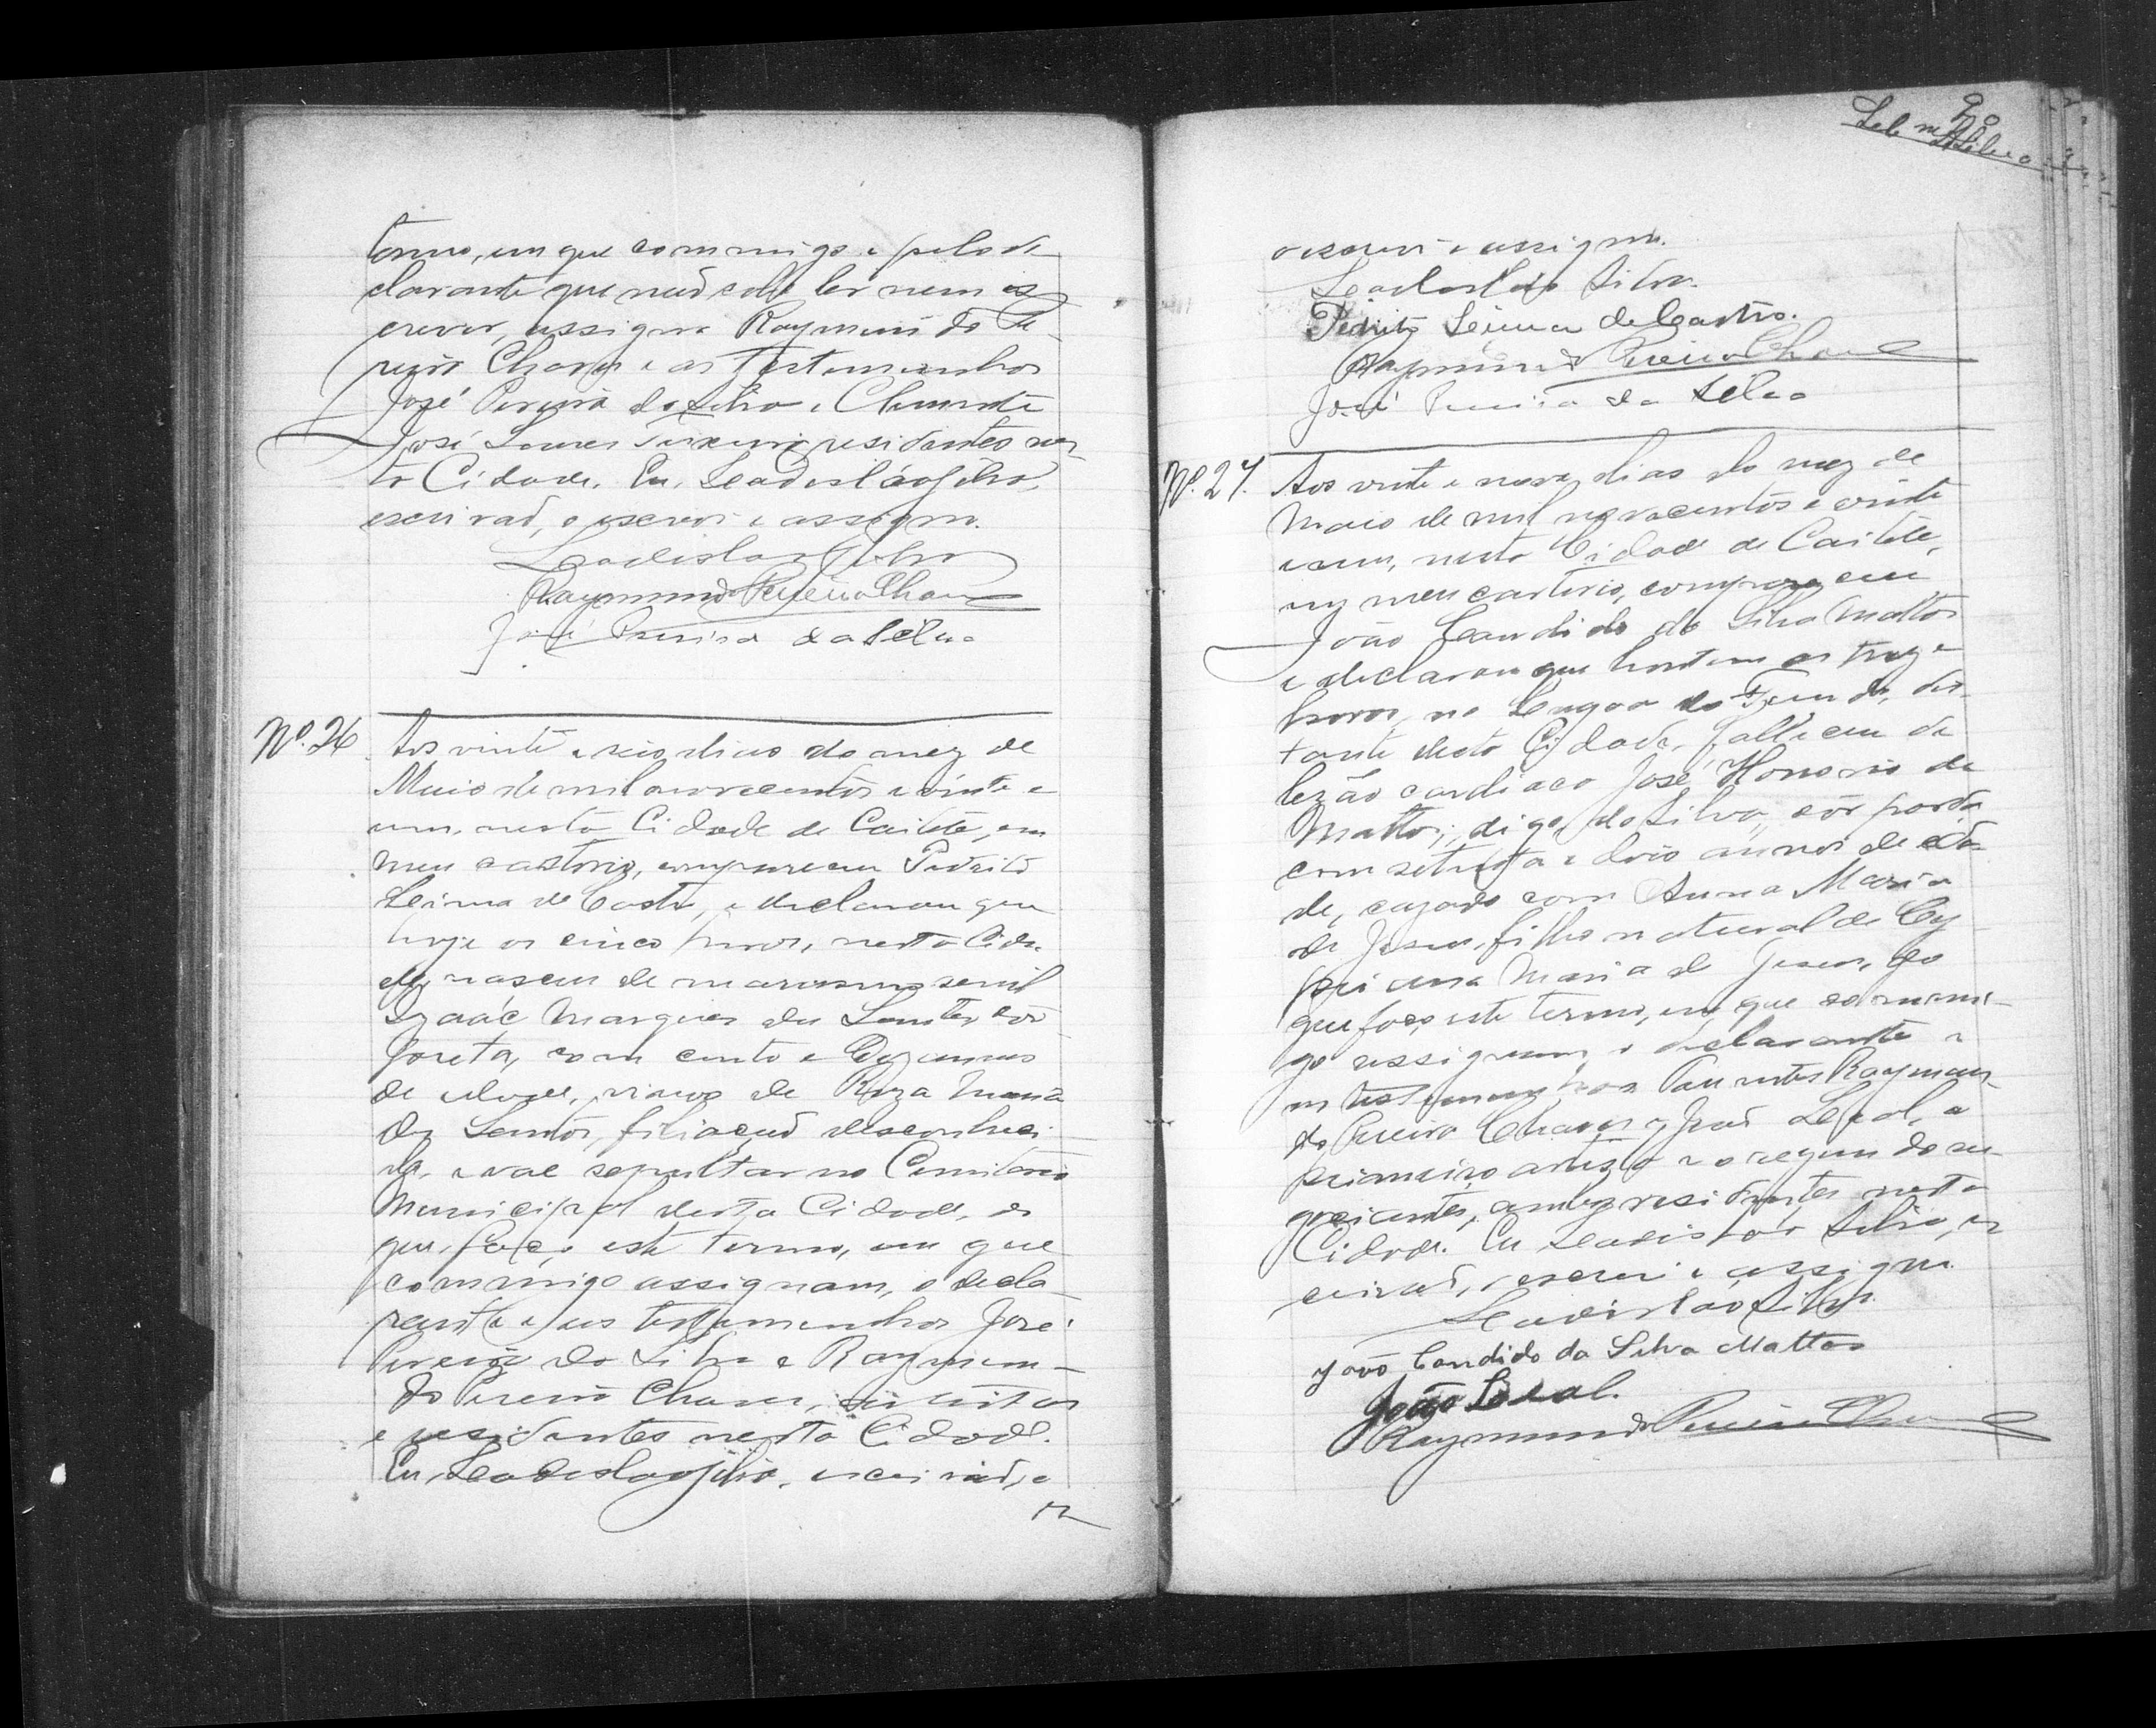 termo, em que commigo e pelo de
clarante que não sabe ler nem es
crever, assigna Raymundo Pe-
reira Chaves e as testemunhas
José Pereira da Silva e Clemente
José Teixeira residentes nes
ta Cidade. Eu, Leadislão Silva,
escrivão, o escrevi e assigno.
Leadislao Silva
Raymundo Pereira Chaves
José Pereira da Silva
Nº. 26. Aos vinte e seis dias do mez de
Maio de mil novecentos e vinte e
um, nesta Cidade de Caiteté, em
meu cartorio, compareceu Pedrito
de Castro, e declarou que
hoje as cinco horas, nesta Cida
de, de marasmo senil
Izaác Marques dos Santos côr
preta, com cento e dez annos
de idade, viuvo de Roza Maria
dos Santos, filiação desconheci
da, e vae sepultar no Cemiterio
Municipal desta Cidade, do
que faço este termo, em que
commigo assignam, o decla
rante e as testemunhas José
Pereira da Silva e Raymun-
do Pereira Chaves,
e residentes nesta Cidade.
Eu, Leadislao Silva, escrivão, o
o escrevi e assigno.
Leadislão Silva.
de Castro.
Raymundo Pereira Chaves
José Pereira da Silva
Nº. 27. Aos vinte e nove dias do mez de
Maio de mil novecentos e vinte
e um, nesta Cidade de Caiteté,
em meu cartorio, compareceu
João Candido da Silva Mattos
e declarou que hontem as treze
horas, na Lagoa do Fundo, dis
tante desta Cidade, falleceu de
lezão cardiaca José Honorio de
Mattos, digo, da Silva, côr parda
com setenta e dois annos de ida
de, cazado com Anna Maria
de Jesus, filho natural de Cy
priana Maria de Jesus, do
que faço este termo, em que commi-
go assignam, o declarante e
as testemunhas Raymun-
do Pereira Chaves e João Leal, o
primeiro artista e o segundo ne
gociante, ambos residentes nesta
Cidade. Eu Leadislão Silva, es
crivão, o escrevi e assigno.
Leadislão Silva.
João Candido da Silva Mattos
João Leal.
Raymundo Pereira Chaves